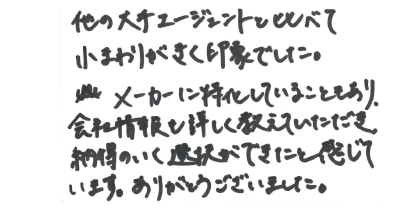 他の大手エージェントと比べて
小まわりがきく印象でした。
メーカーに特化していることもあり、
会社情報も詳しく教えていただき、
納得のいく選択ができたと感じて
います。ありがとうございました。